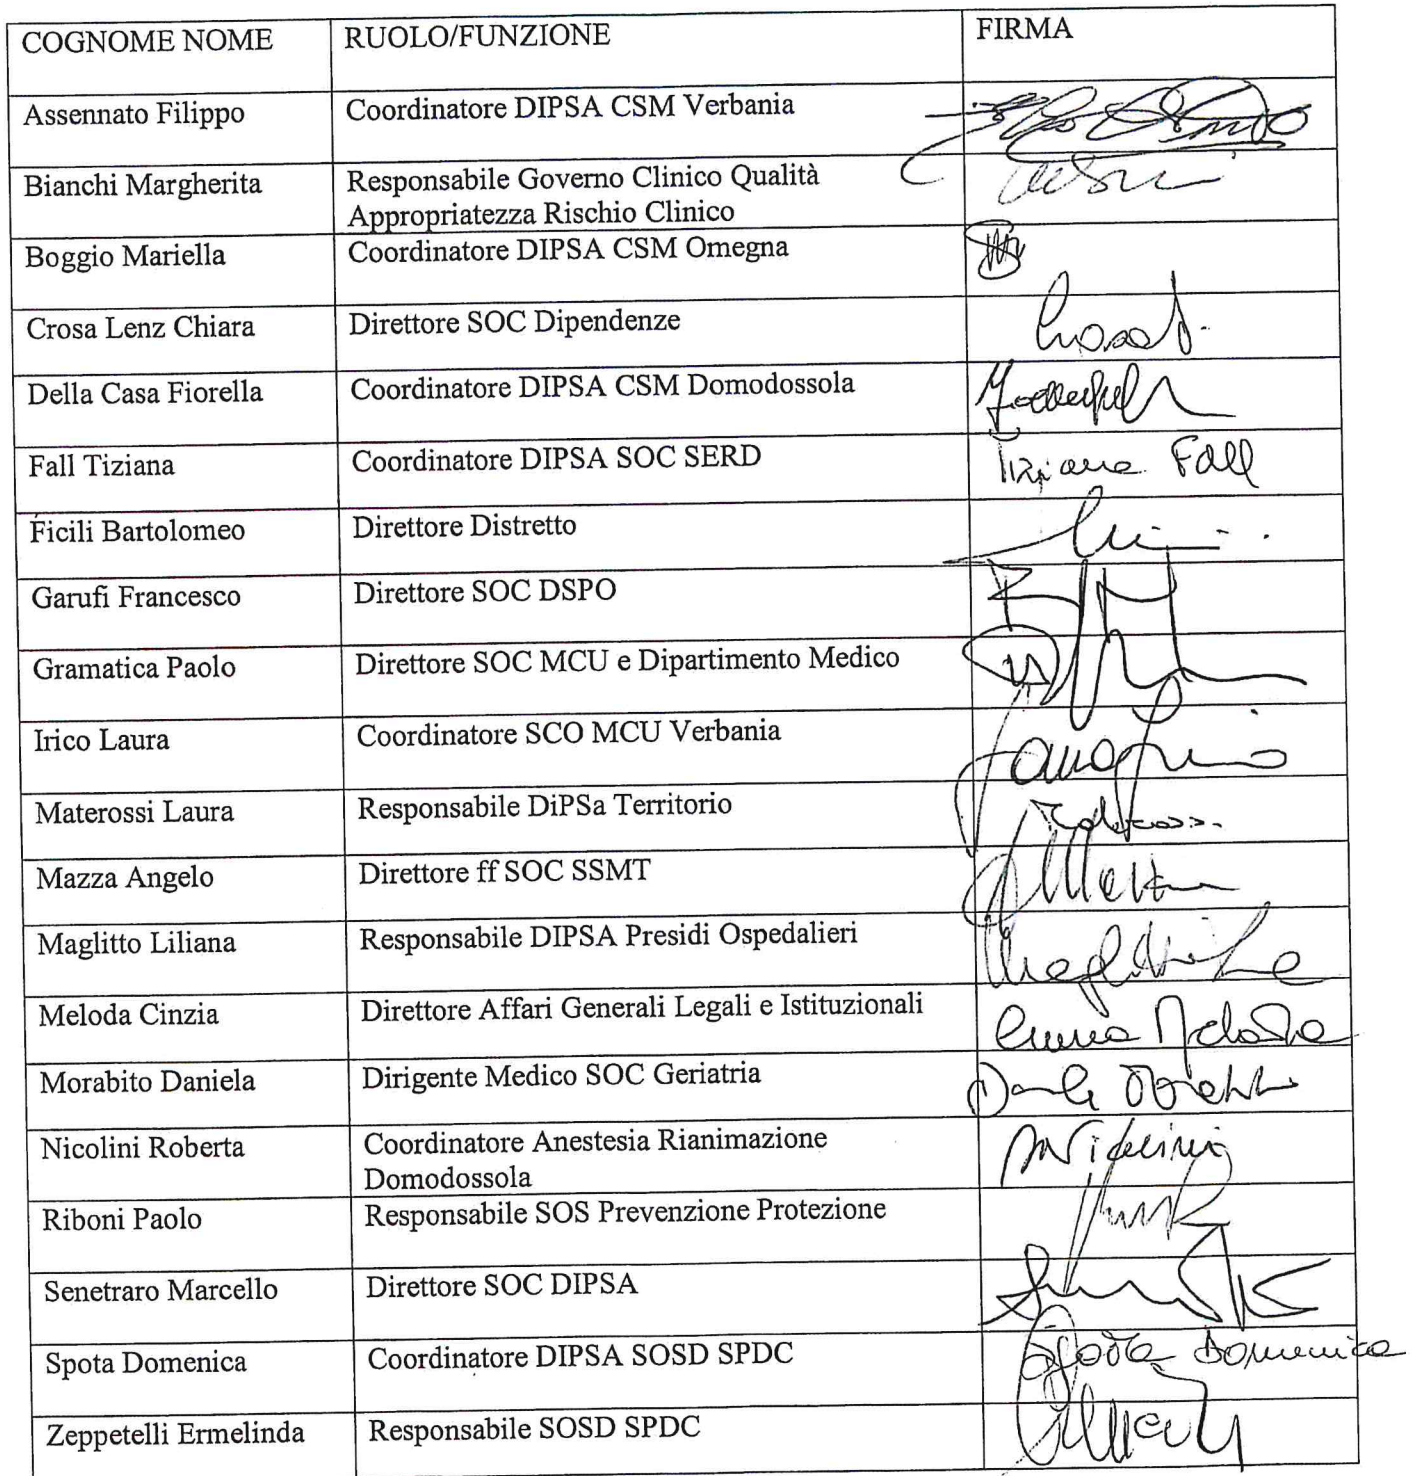 COGNOME NOME RUOLO/FUNZIONE FIRMA
Assennato Filippo Coordinatore DIPSA CSM Verbania
Bianchi Margherita Responsabile Governo Clinico Qualità
Appropriatezza Rischio Clinico
Boggio Mariella Coordinatore DIPSA CSM Omegna
Crosa Lenz Chiara Direttore SOC Dipendenze
Della Casa Fiorella Coordinatore DIPSA CSM Domodossola
Fall Tiziana Coordinatore DIPSA SOC SERD Tiziana Fall
Ficili Bartolomeo Direttore Distretto
Garufi Francesco Direttore SOC DSPO
Gramatica Paolo Direttore SOC MCU e Dipartimento Medico
Irico Laura Coordinatore SCO MCU Verbania
Materossi Laura Responsabile DiPSa Territorio
Mazza Angelo Direttore ff SOC SSMT
Maglitto Liliana Responsabile DIPSA Presidi Ospedalieri
Meloda Cinzia Direttore Affari Generali Legali e Istituzionali
Morabito Daniela Dirigente Medico SOC Geriatria
Nicolini Roberta Coordinatore Anestesia Rianimazione
Domodossola
Riboni Paolo Responsabile SOS Prevenzione Protezione
Senetraro Marcello Direttore SOC DIPSA
Spota Domenica Coordinatore DIPSA SOSD SPDC Spota Domenica
Zeppetelli Ermelinda Responsabile SOSD SPDC